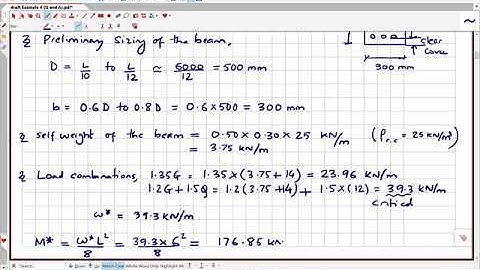 draft Example 4 (Q and A).pdf*
Preliminary Sizing of the beam,
clear
cover
300 mm
D = L/10 to L/12 ≃ 6000/12 = 500 mm
b = 0.6D to 0.8D = 0.6×500 = 300 mm
self weight of the beam = 0.50 × 0.30 × 25 kN/m (ρr.c = 25 kN/m³)
= 3.75 kN/m
Load combinations, 1.35G = 1.35×(3.75+14) = 23.96 kN/m
1.2G + 1.5Q = 1.2(3.75+14) + 1.5×(12) = 39.3 kN/m
critical
ω* = 39.3 kN/m
M* = ω*L²/8 = 39.3×6²/8 = 176.85 kN